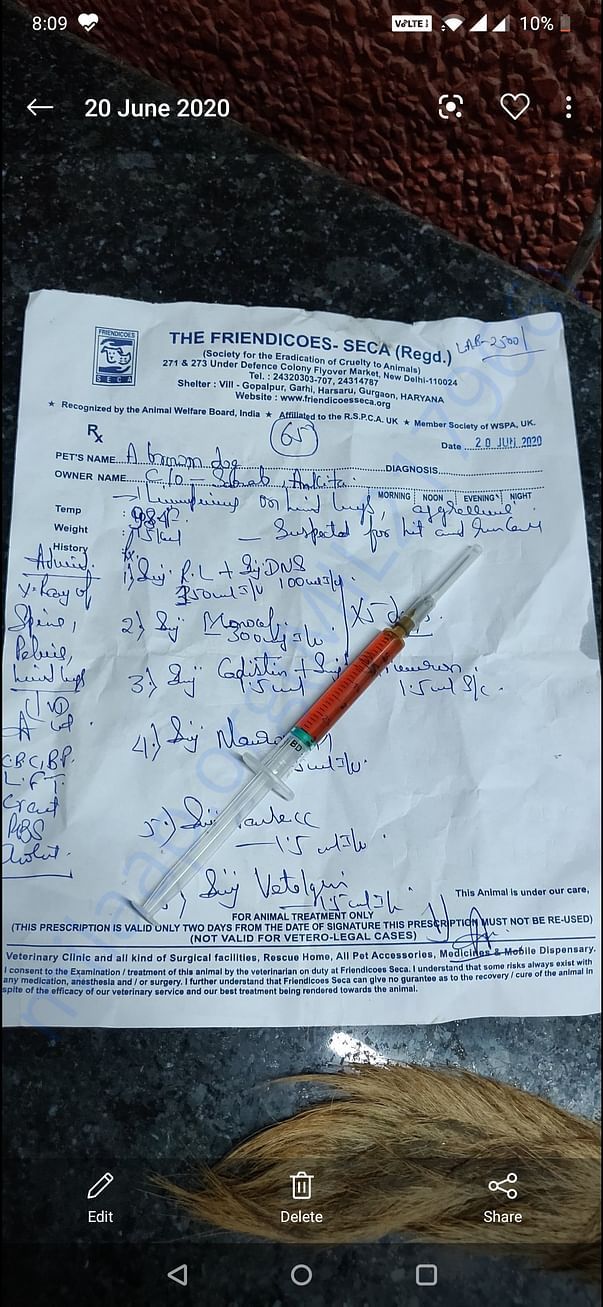 8:09
VoLTE
10%
20 June 2020
FRIENDICOES
SECA
THE FRIENDICOES- SECA (Regd.)
LAB-2500/
(Society for the Eradication of Cruelty to Animals)
271 & 273 Under Defence Colony Flyover Market, New Delhi-110024
Tel. : 24320303-707, 24314787
Shelter : Vill - Gopalpur, Garhi, Harsaru, Gurgaon, HARYANA
Website : www.friendicoesseca.org
★ Recognized by the Animal Welfare Board, India ★ Affiliated to the R.S.P.C.A. UK ★ Member Society of WSPA, UK.
Rx
65
Date 20 JUN 2020
PET'S NAME A brown dog DIAGNOSIS
OWNER NAME C/O - Ankita
MORNING NOON EVENING NIGHT
on hind legs, aggressive
Temp
Weight
- Suspected for hit and run case
History
Advised
X-Ray of
Spine,
Pelvis,
hind legs
1) Inj R.L + Inj DNS
350ml I/V 100ml I/V
2) Inj Monocef
300mg I/V
X5 days
3) Inj + Inj
1.5ml 1.5ml S/c
4) Inj
ml I/V
CBC, BP
LFT
5) Inj
1.5 ml I/V
Inj Vetalgin
1.5 ml I/V
This Animal is under our care,
FOR ANIMAL TREATMENT ONLY
(THIS PRESCRIPTION IS VALID ONLY TWO DAYS FROM THE DATE OF SIGNATURE THIS PRESCRIPTION MUST NOT BE RE-USED)
(NOT VALID FOR VETERO-LEGAL CASES)
Veterinary Clinic and all kind of Surgical facilities, Rescue Home, All Pet Accessories, Medicines & Mobile Dispensary.
I consent to the Examination / treatment of this animal by the veterinarian on duty at Friendicoes Seca. I understand that some risks always exist with
any medication, anesthesia and / or surgery. I further understand that Friendicoes Seca can give no gurantee as to the recovery / cure of the animal in
spite of the efficacy of our veterinary service and our best treatment being rendered towards the animal.
BD
Edit
Delete
Share